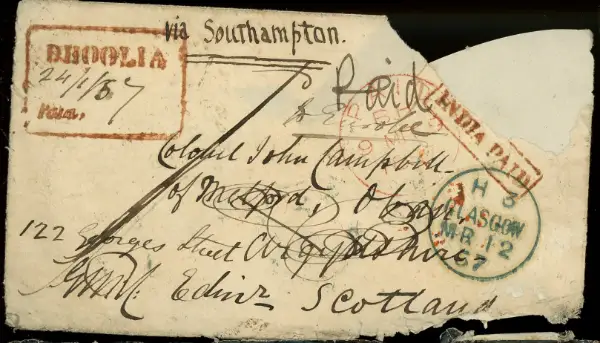 via Southampton.
DHOOLIA
24/1/57
Paid.
Paid
INDIA PAID
PAID
Colonel John Campbell
of Melford, Oban
122 Georges Street Argyllshire
Edinr Scotland
H 3
GLASGOW
MR 12
57